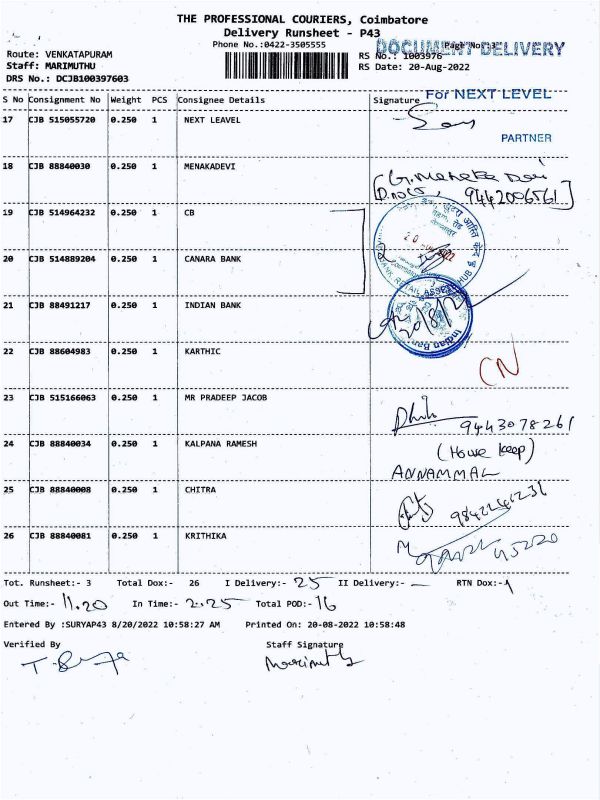 THE PROFESSIONAL COURIERS, Coimbatore
Delivery Runsheet - P43
Phone No.:0422-3505555
DOCUMENT DELIVERY
Page No: 3
Route: VENKATAPURAM
RS No.: 1003976
Staff: MARIMUTHU
RS Date: 20-Aug-2022
DRS No.: DCJB100397603
S No Consignment No Weight PCS Consignee Details Signature
For NEXT LEVEL
17 CJB 515055720 0.250 1 NEXT LEAVEL
PARTNER
18 CJB 88840030 0.250 1 MENAKADEVI
G. Meneka Devi
9442006561
19 CJB 514964232 0.250 1 CB
20 CJB 514889204 0.250 1 CANARA BANK
RETAIL ASSET HUB
21 CJB 88491217 0.250 1 INDIAN BANK
20/8/22
Indian Ban
22 CJB 88604983 0.250 1 KARTHIC
CN
23 CJB 515166063 0.250 1 MR PRADEEP JACOB
9443078261
24 CJB 88840034 0.250 1 KALPANA RAMESH
(House keep)
ANNAMMAL
25 CJB 88840008 0.250 1 CHITRA
9842241231
26 CJB 88840081 0.250 1 KRITHIKA
45220
Tot. Runsheet:- 3 Total Dox:- 26 I Delivery:- 25 II Delivery:- — RTN Dox:- 1
Out Time:- 11.20 In Time:- 2.25 Total POD:- 16
Entered By :SURYAP43 8/20/2022 10:58:27 AM Printed On: 20-08-2022 10:58:48
Verified By Staff Signature
Marimuthu